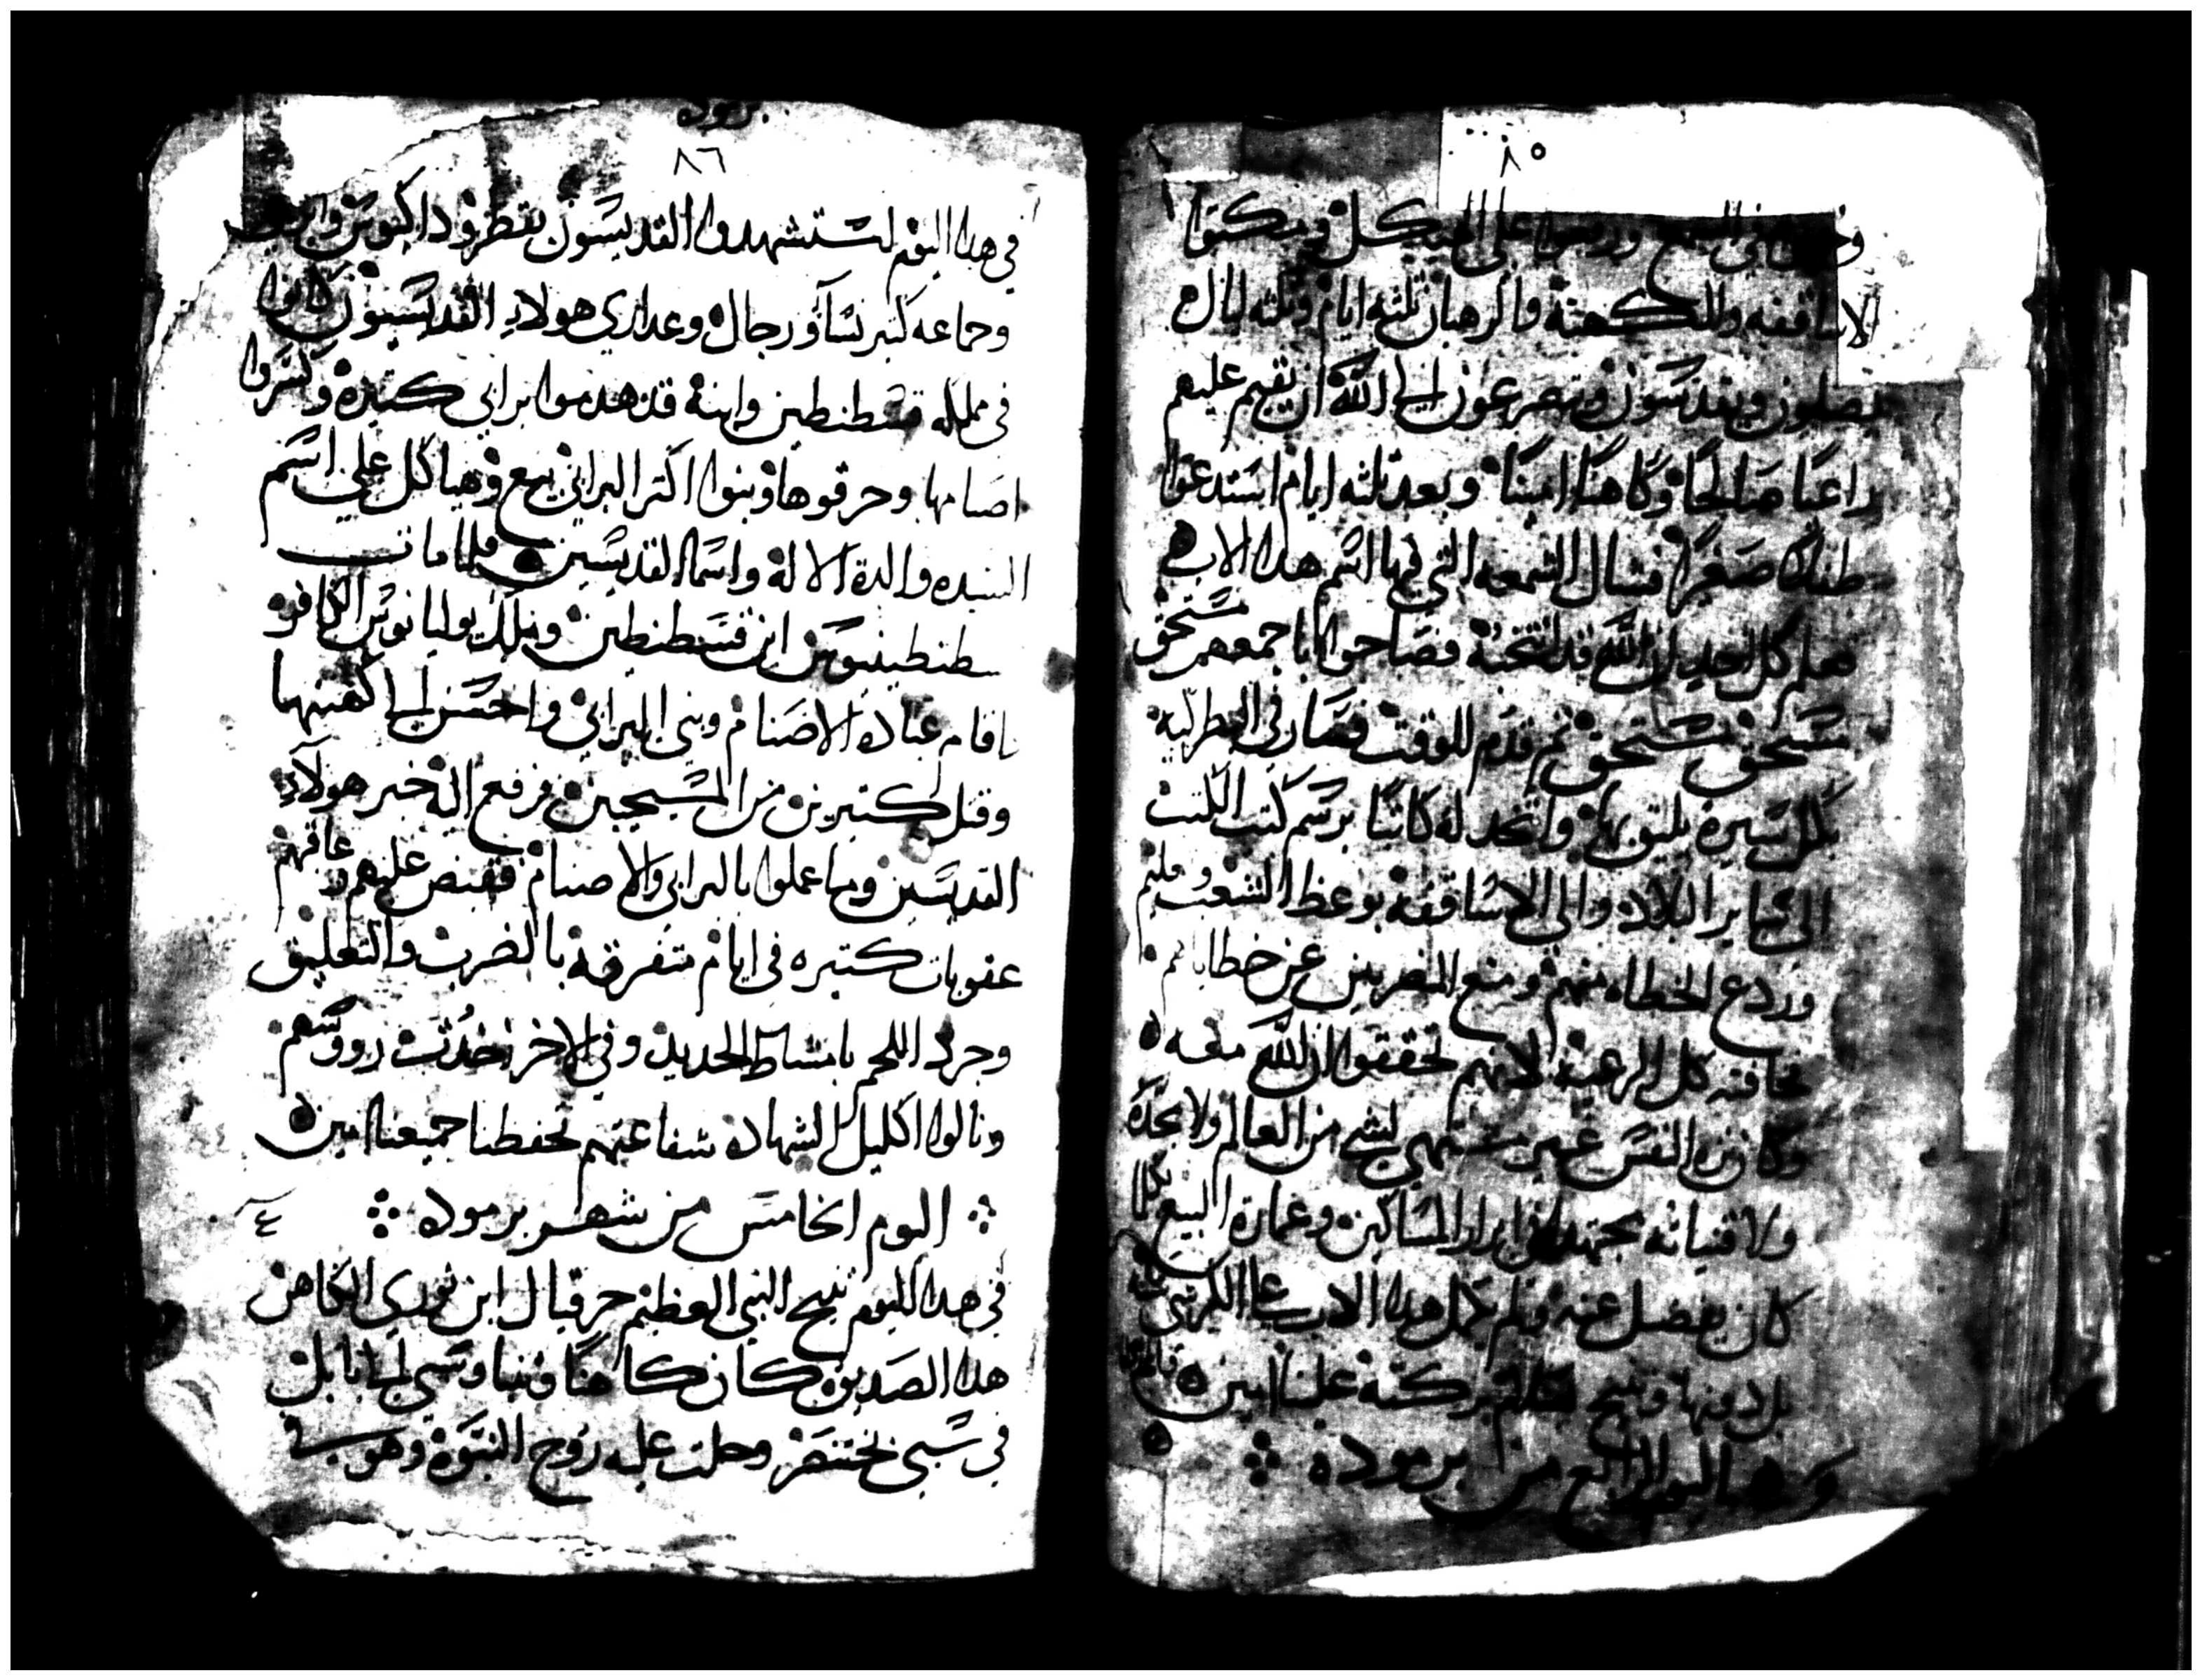 ٨٥
على الهيكل ويمكتوا
الاساقفه والكهنة والرهبان ثلثه ايام وثلثه ليال
يصلون ويقدسون ويتضرعون الي الله ان يقيم عليهم
راعيا صالحا وكاهنا امينا وبعد ثلثه ايام استدعوا
طفلا صغيرا فشال الشمعه التي فيها اسم هدا الاب
فعلم كل احد ان الله قد انتخبه فصاحوا باجمعهم مستحق
مستحق مستحق ثم قدم للوقت فصار في البطركية
بكل سيرة يليق بها واتخد له كاتبا برسم كتب الكتب
الى ساير البلاد والى الاساقفه بوعظ الشعب وعليم
وردع الخطاه منهم ومنع المصرين عن خطاياهم
تخافته كل الرعية لانهم تحققوا ان الله معه
وكان نزه النفس غير مشتهي لشي من العالم ولا مجده
ولا قنياته مجتهدا في ابرار المساكين وعمارة البيع بكلما
كان يفضل عنه ولم هدا الاب على الكرسي
بل دونها وتنيح بركته علينا امين
اليوم الرابع من برموده
برموده
٨٦
في هدا اليوم استشهدوا القديسون بقطر وداكيوس
وجماعه كتير نسا ورجال وعداري هولاء القديسون كانوا
فى مملكه قسطنطين وابنه قد هدموا برابي كتيرة وكسروا
اصنامها وحرقوها وبنوا اكتر البرابي بيع وهياكل علي اسم
السيده والدة الاله واسما القديسين فلما مات
سطنطينيوس ابن قسطنطين وملك يوليانوس الكافر
فاقام عباده الاصنام وبنى البرابي واحسن الي كهنتها
وقتل كتيرين من المسيحيين فرفع اليه خبر هولاء
القديسين وما عملوا بالبرابي والاصنام فقبض عليهم وعاقبهم
عقوبات كتيره فى ايام متفرقة بالضرب والتعليق
وجرد اللحم بامشاط الحديد وفي الاخر اخدت رووسهم
ونالوا اكليل الشهاده شفاعتهم تحفظنا جميعنا امين
اليوم الخامس من شهر برموده
٤
في هدا اليوم تنيح النبي العظيم حزقيال ابن بوزي الكاهن
هدا الصديق كان كاهنا ونبيا وسبي الي بابل
في سبي بختنصر وحلت عليه روح النبوة وهو